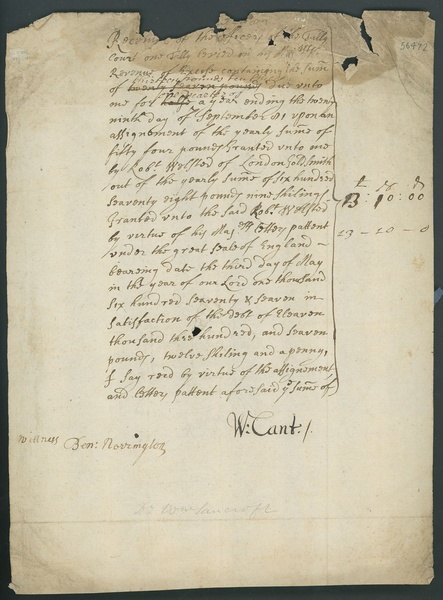 56472
Received of the Officers of his Ma
Court one Tally levied in his Mats
Revenue of Excise containing the sume
thirteene pounds tenn s
of twenty seaven pounds due unto
one quarter of
me for halfe a yeare ending the twen
ninth day of September 81 upon an
assignement of the yearly sume of
fifty four pounds Granted unto me
by Robt Welsted of London Goldsmith
out of the yearly sume of six hundred
seaventy eight pounds nine shilings
Granted unto the said Robt Welsted
by virtue of his Maties Letters pattent
under the great seale of England –
beareing date the third day of May
in the yeare of our Lord one thousand
six hundred seaventy & seaven in
satisfaction of the debt of Eleaven
thousand three hundred, and seaven
pounds, twelve shiling and a penny,
I say recd by virtue of the assignement
and letters pattent aforesaid ye sume of
£ s d
13 : 10 : 00
13 – 10 – 0
W: Cant /.
Wittness Ben: Norrington